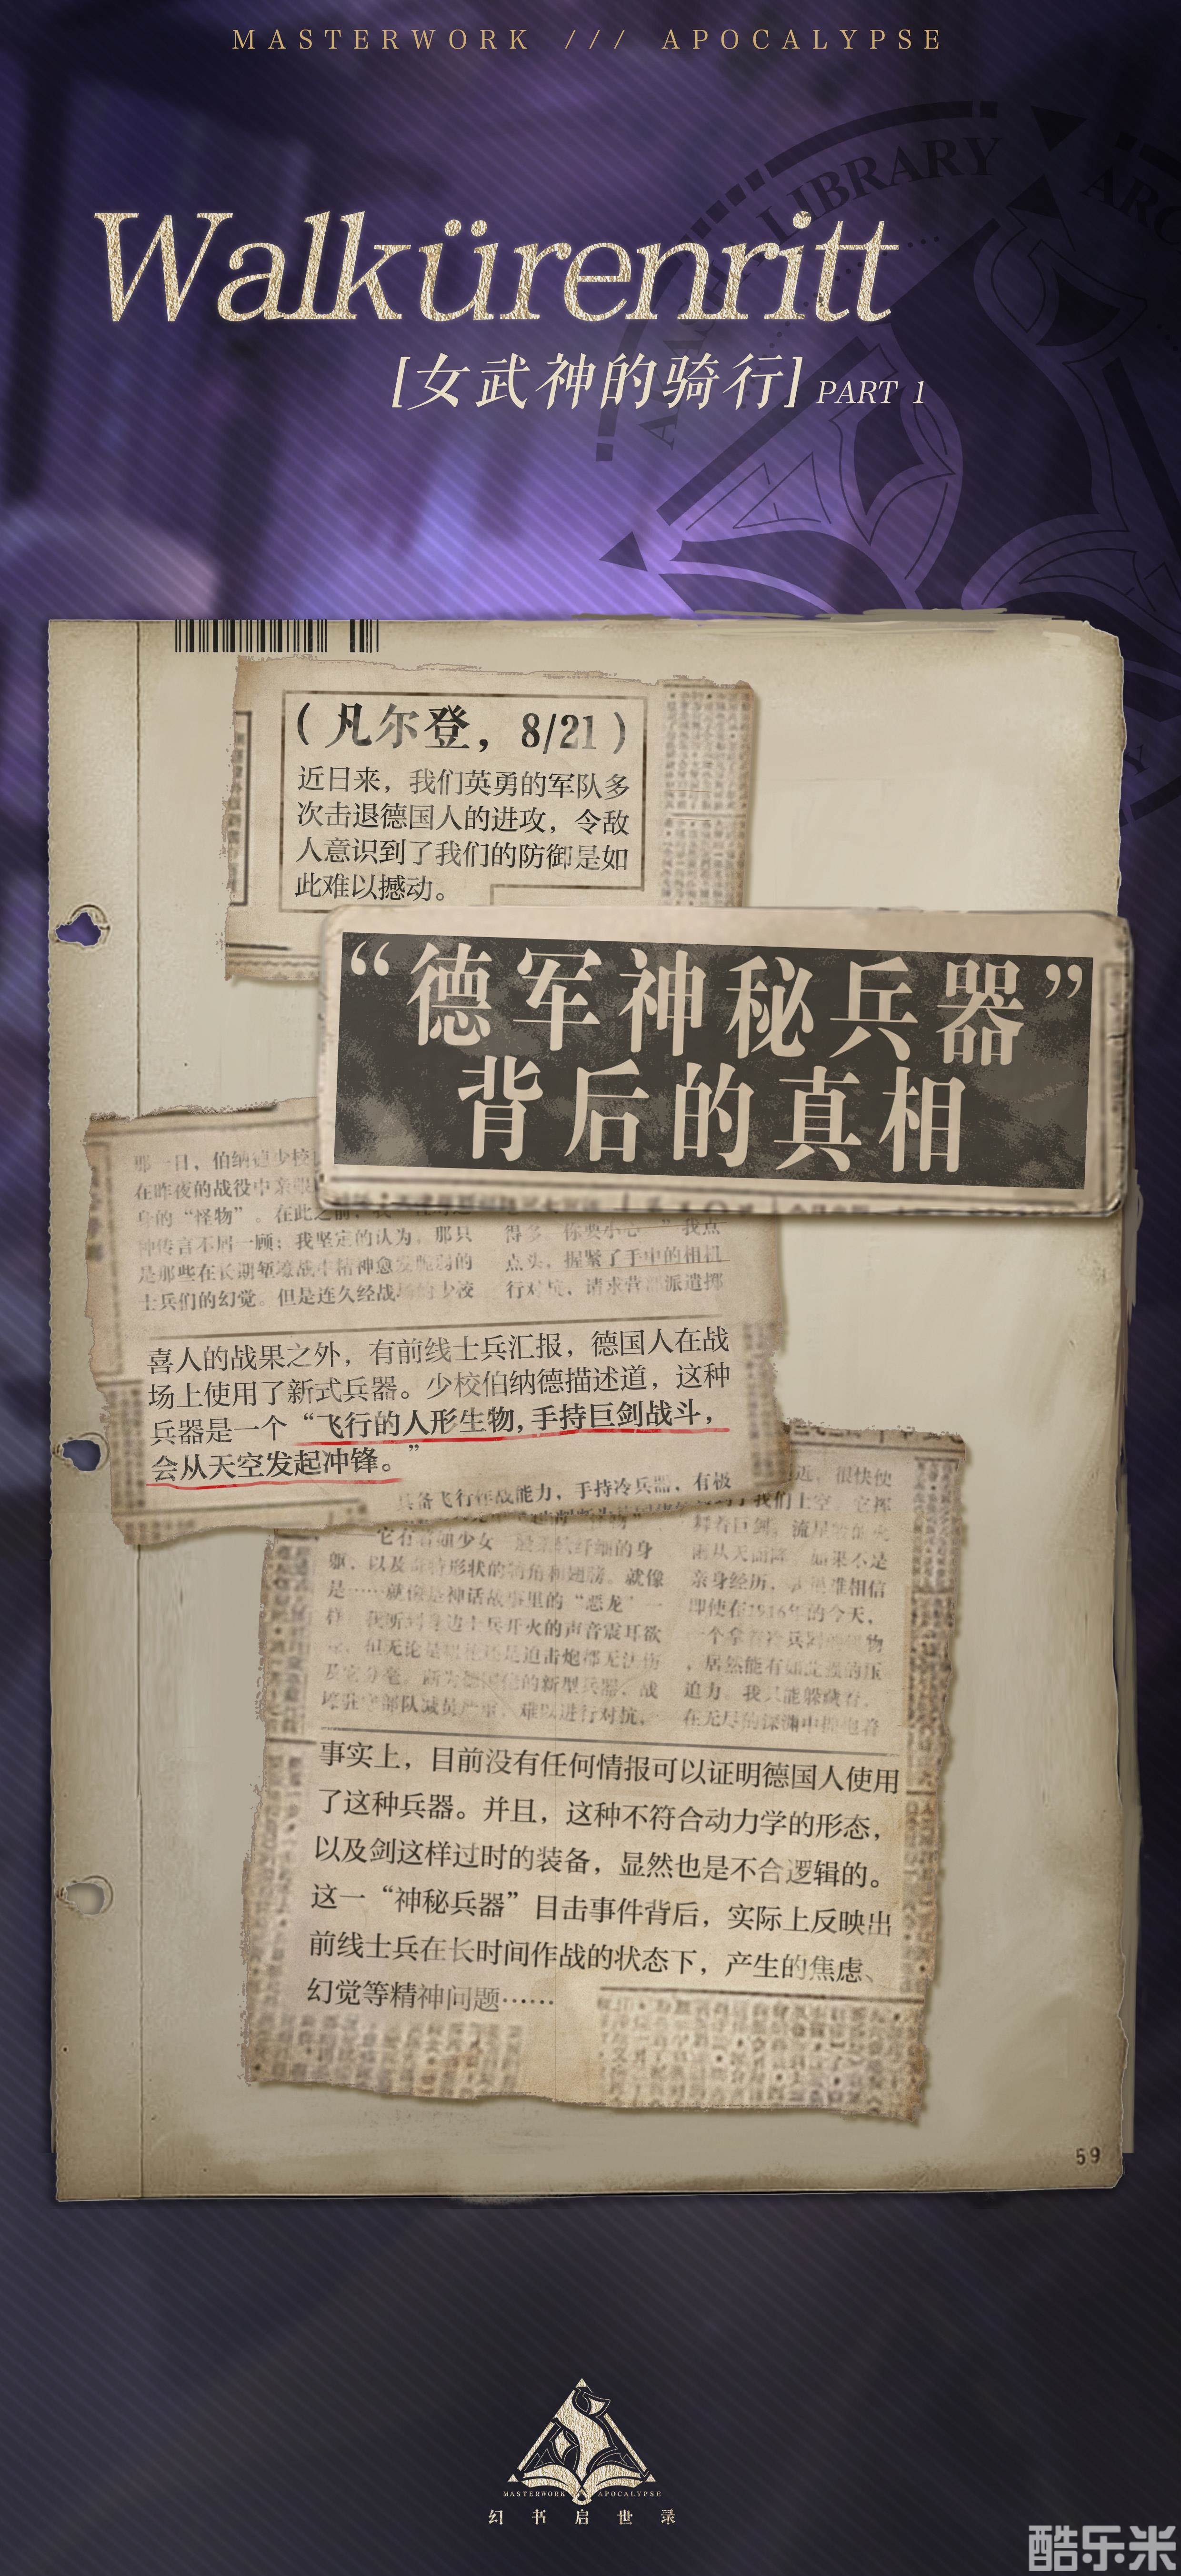 MASTERWORK /// APOCALYPSE
LIBRARY
Walkürenritt
[女武神的骑行] PART 1
（凡尔登，8/21）
近日来，我们英勇的军队多
次击退德国人的进攻，令敌
人意识到了我们的防御是如
此难以撼动。
“德军神秘兵器”
背后的真相
那一日，伯纳德少校
在昨夜的战役中亲眼
身的“怪物”。在此之前，我
神传言不屑一顾；我坚定的认为，那只
是那些在长期堑壕战中精神愈发脆弱的
士兵们的幻觉。但是连久经战场的少校
得多。你要小心。”我点
点头，握紧了手中的相机
行对抗，请求营部派遣挪
喜人的战果之外，有前线士兵汇报，德国人在战
场上使用了新式兵器。少校伯纳德描述道，这种
兵器是一个“飞行的人形生物，手持巨剑战斗，
会从天空发起冲锋。”
具备飞行作战能力，手持冷兵器，有极
它有着如少女一般柔软纤细的身
躯，以及奇特形状的犄角和翅膀。就像
是……就像是神话故事里的“恶龙”一
样。我听到身边士兵开火的声音震耳欲
但无论是机枪还是迫击炮都无法伤
及它分毫。断为德国人的新型兵器，战
壕驻守部队减员严重，难以进行对抗，
近，很快便
我们上空。它挥
舞着巨剑，流星般的火
雨从天而降。如果不是
亲身经历，我很难相信
即使在1916年的今天，
一个拿着冷兵器的怪物
，居然能有如此强的压
迫力。我只能躲藏着，
在无尽的深渊中拥抱着
事实上，目前没有任何情报可以证明德国人使用
了这种兵器。并且，这种不符合动力学的形态，
以及剑这样过时的装备，显然也是不合逻辑的。
这一“神秘兵器”目击事件背后，实际上反映出
前线士兵在长时间作战的状态下，产生的焦虑、
幻觉等精神问题……
59
MASTERWORK APOCALYPSE
幻书启世录
酷乐米